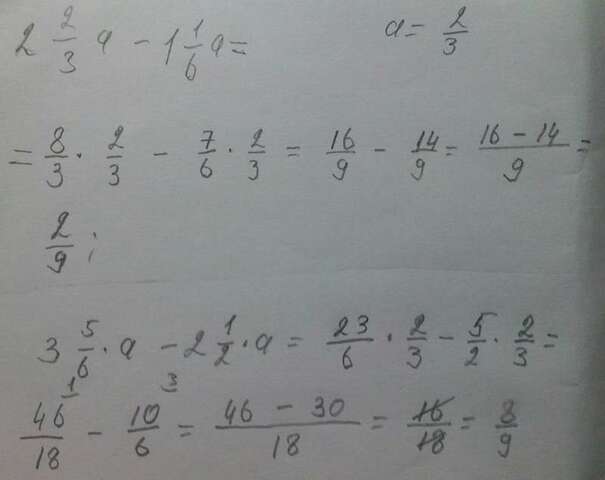 2 2/3 a - 1 1/6 a = a = 2/3
= 8/3 · 2/3 - 7/6 · 2/3 = 16/9 - 14/9 = 16 - 14/9 =
2/9 ;
3 5/6 · a - 2 1/2 · a = 23/6 · 2/3 - 5/2 · 2/3 =
1 3
46/18 - 10/6 = 46 - 30/18 = 16/18 = 8/9